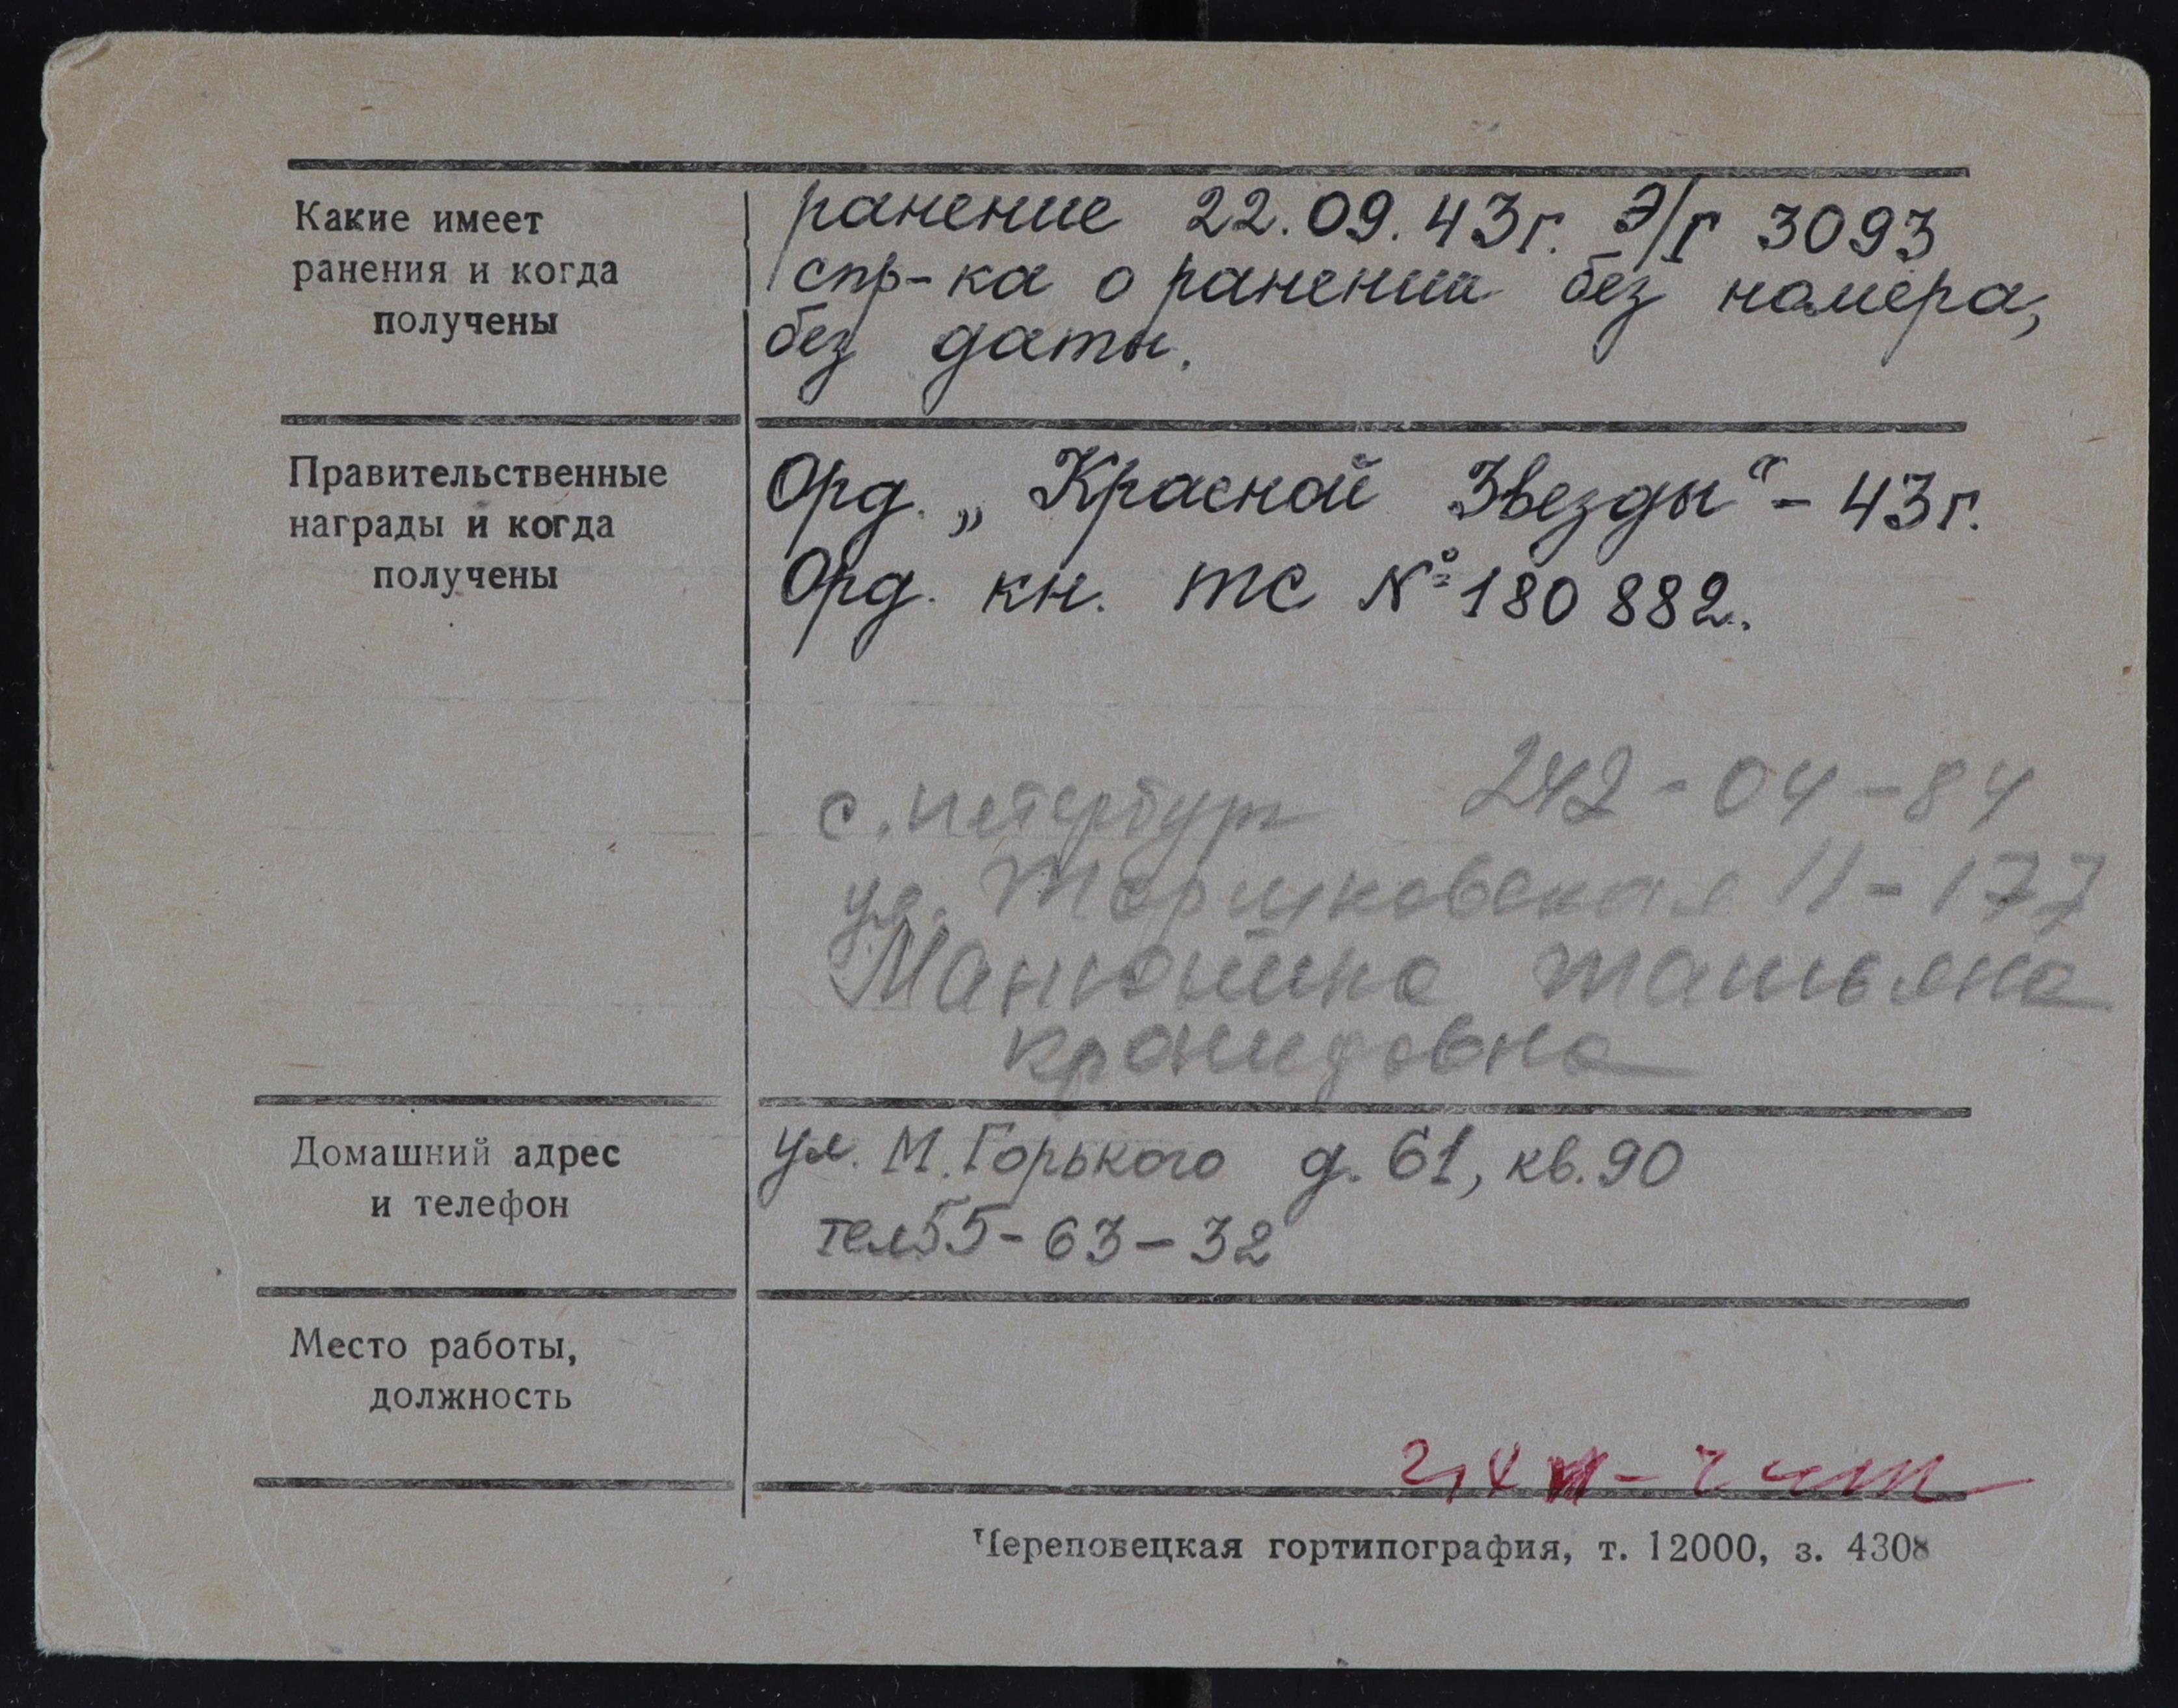 Какие имеет
ранения и когда
получены
ранение 22.09.43г. Э/Г 3093
спр-ка о ранении без номера,
без даты.
Правительственные
награды и когда
получены
Орд. „Красной Звезды“ - 43г.
Орд. кн. ТС № 180 882.
с. петербург 242-04-84
ул. Торжковская 11-177
татьяна
Домашний адрес
и телефон
ул. М. Горького д. 61, кв. 90
тел 55-63-32
Место работы,
должность
Череповецкая гортипография, т. 12000, з. 4308